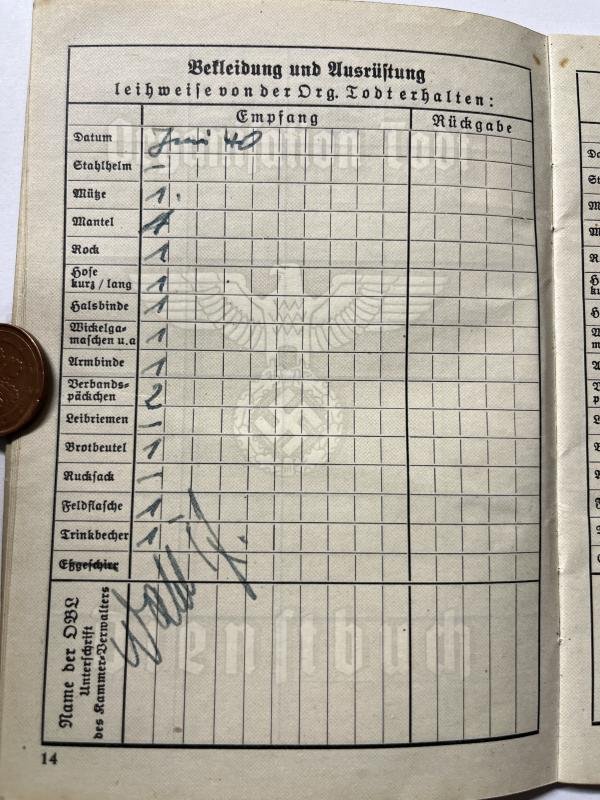 Bekleidung und Ausrüstung
leihweise von der Org. Todt erhalten:
Empfang Rückgabe
Organisation Todt
Datum Juni 40
Stahlhelm –
Mütze 1.
Mantel 1
Rock 1
Hose
kurz / lang 1
Halsbinde 1
Wickelga-
maschen u.a 1
Armbinde 1
Verbands-
päckchen 2
Leibriemen –
Brotbeutel 1
Rucksack –
Feldflasche 1
Trinkbecher 1
Eßgeschirr
Name der OBL
Unterschrift
des Kammer-Verwalters
Dienstbuch
14